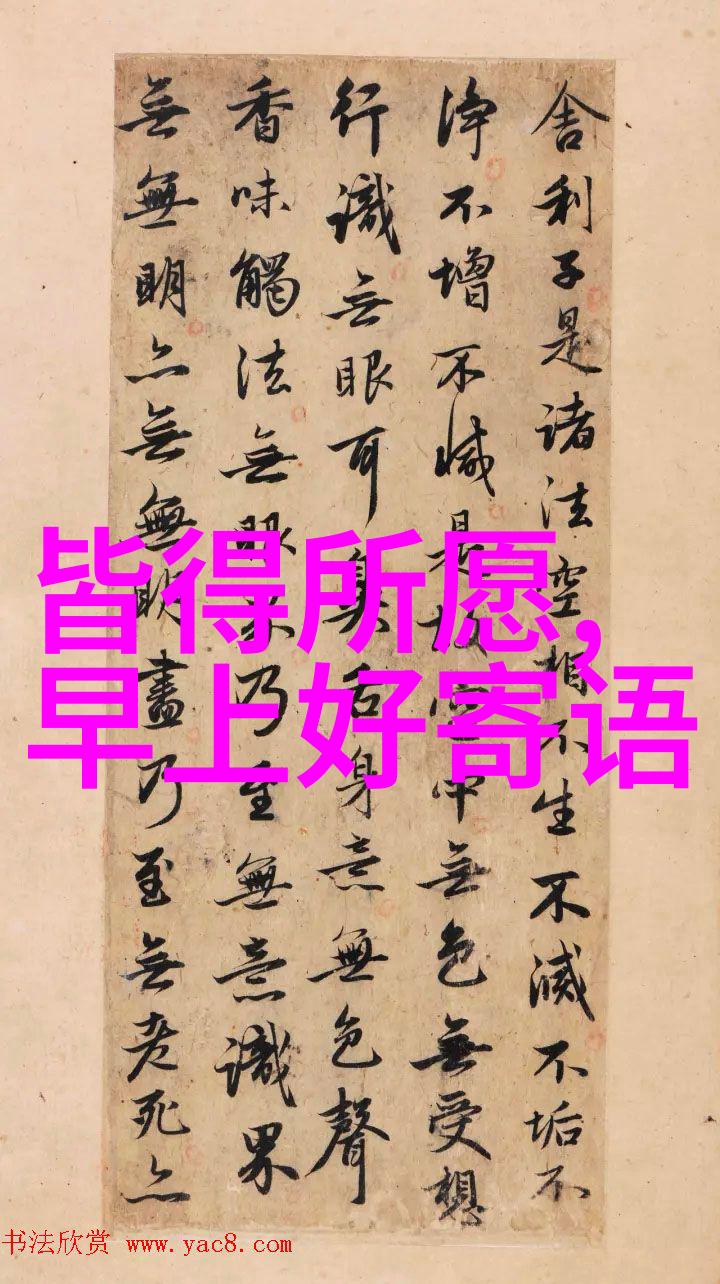 舍利子是諸法空相不生不滅不垢不
淨不增不減是故空中無色無受想
行識無眼耳鼻舌身意無色聲
香味觸法無眼界乃至無意識界
無無明亦無無明盡乃至無老死亦
皆得所愿,
早上好寄语
书法欣赏 www.yac8.com